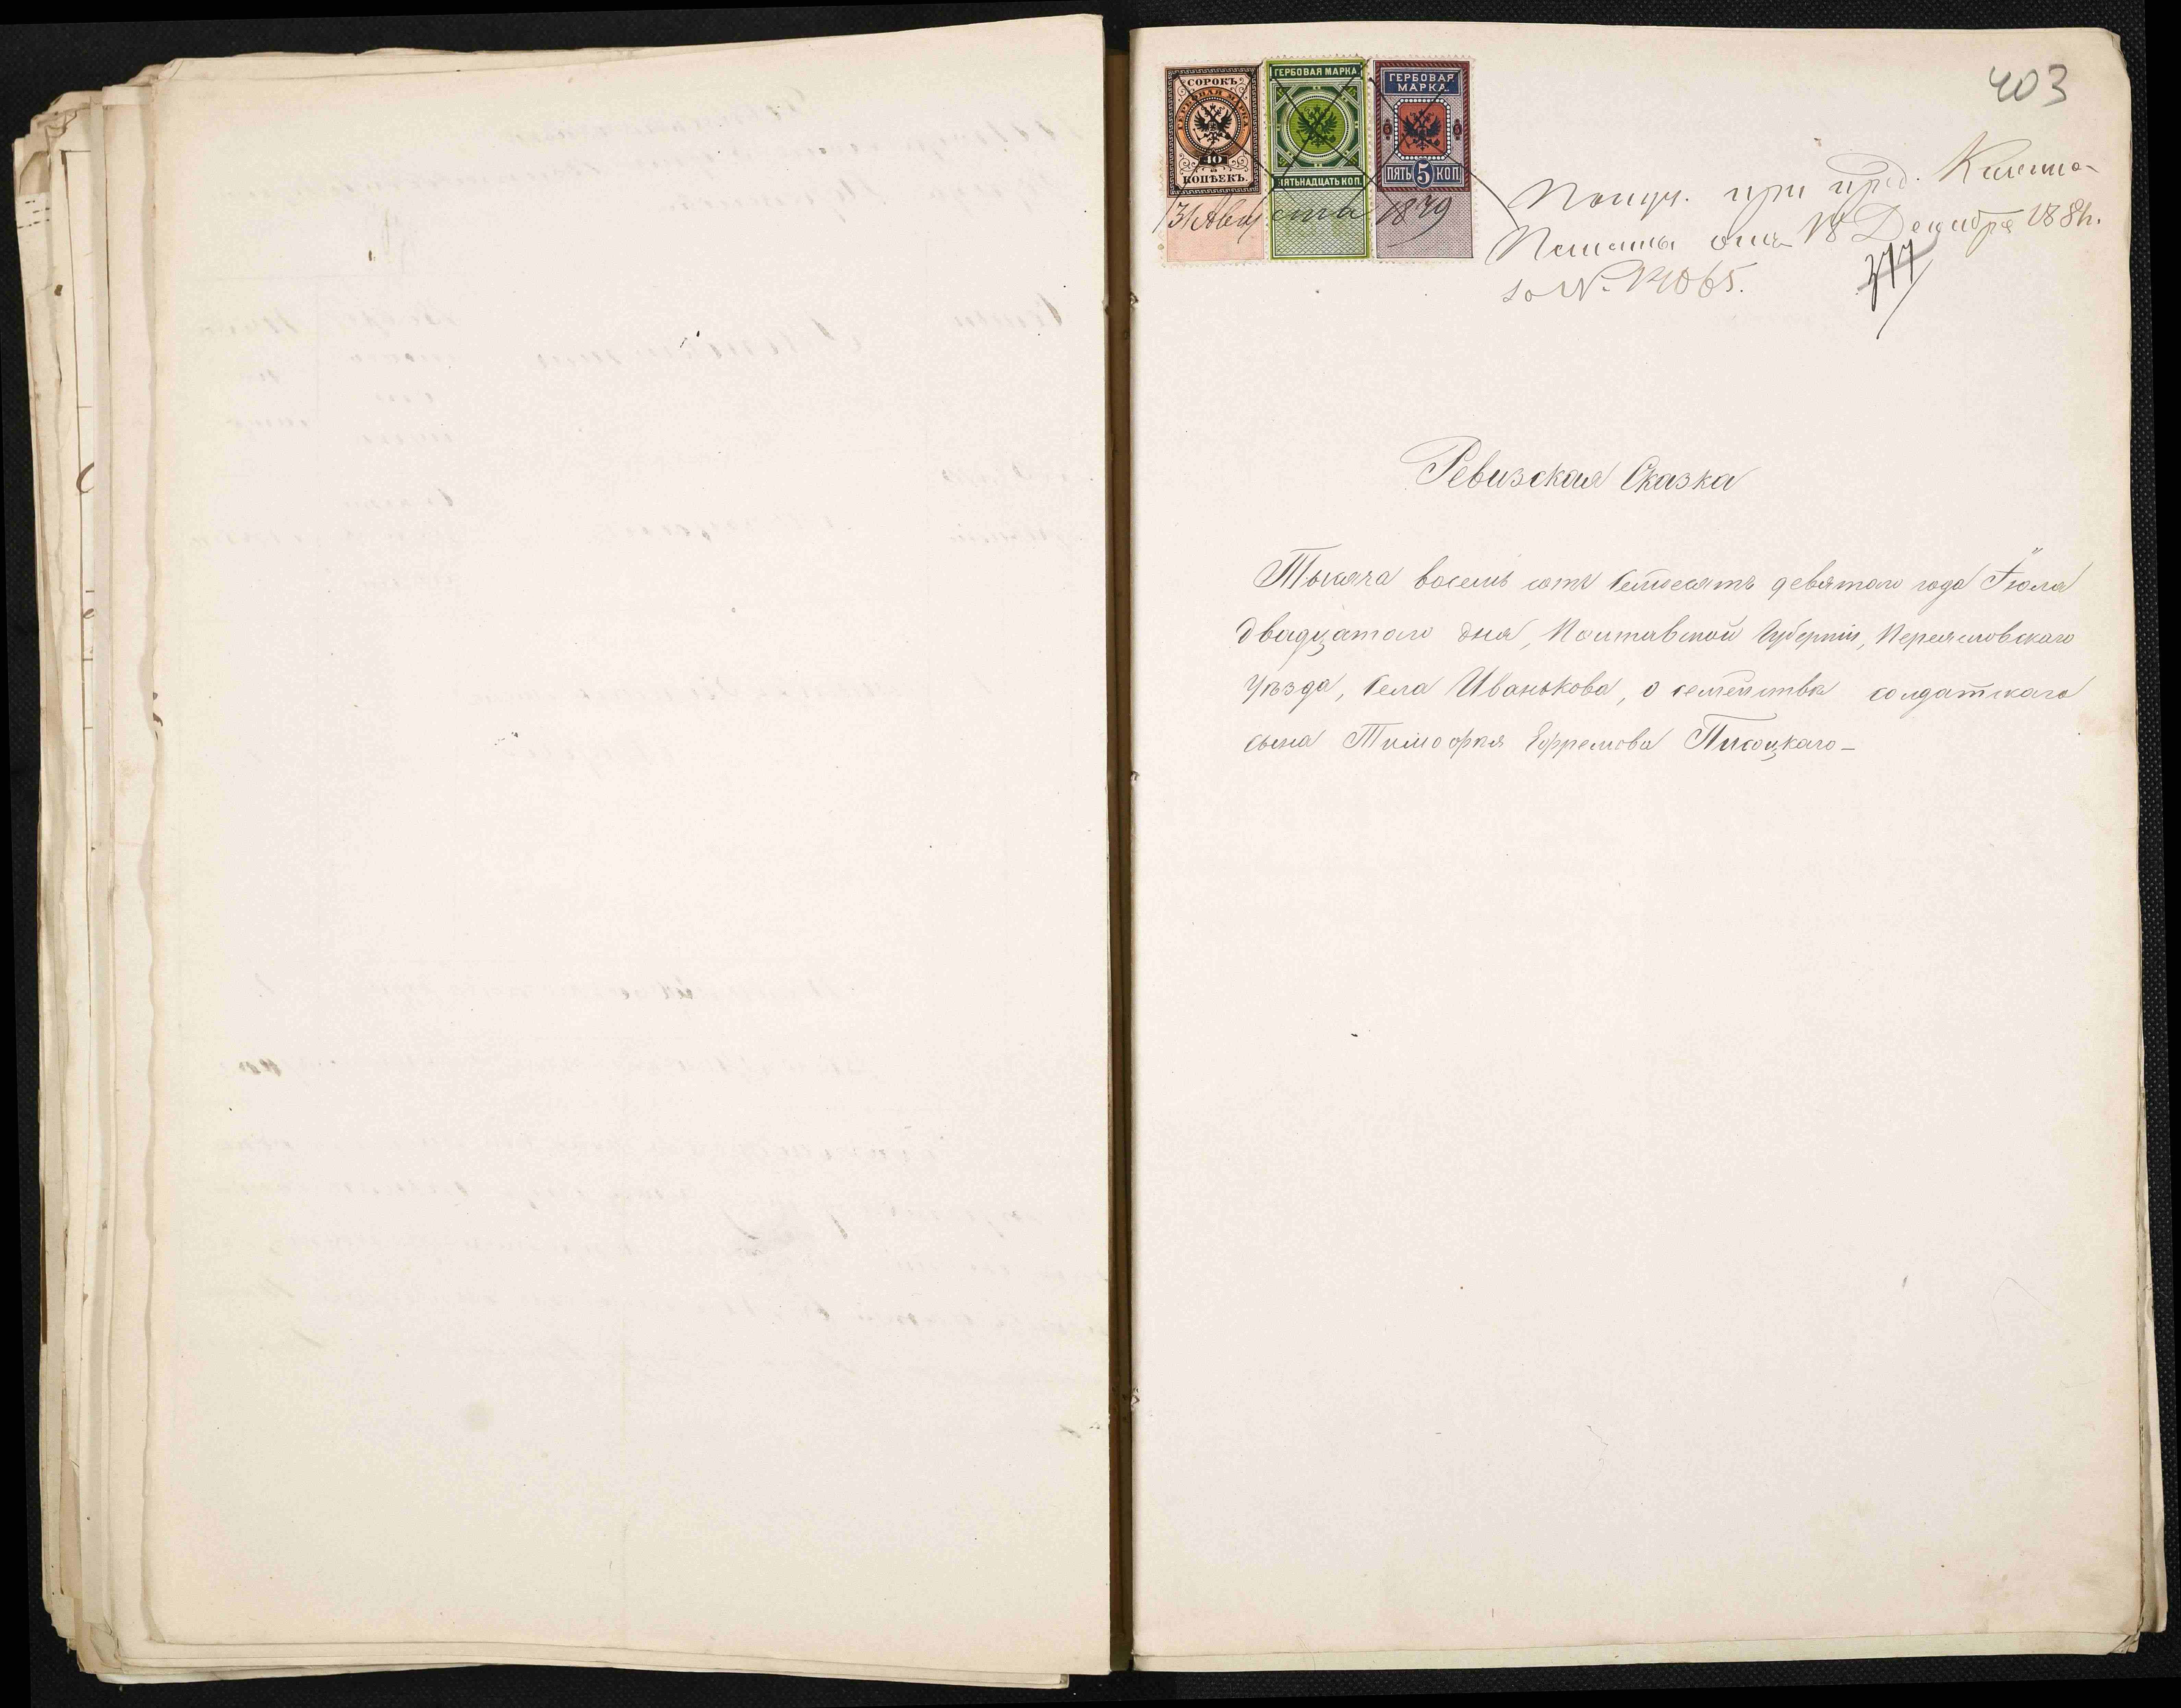 403
СОРОКЪ
ГЕРБОВАЯ МАРКА
40
КОПѢЕКЪ.
ГЕРБОВАЯ МАРКА
ПЯТЬНАДЦАТЬ КОП.
ГЕРБОВАЯ
МАРКА
ПЯТЬ 5 КОП
31 Августа 1879
Получ. при пред. Казенно-
Палаты отъ 18 Декабря 188
за №
377
Ревизская Сказка
Тысяча восемь сотъ семдесятъ девятого года Іюля
двадцатого дня, Полтавской Губерніи, Переясловскаго
Уѣзда, села Иванькова, о семействѣ солдатскаго
сына Тимофѣя Ефремова Писоцкаго-